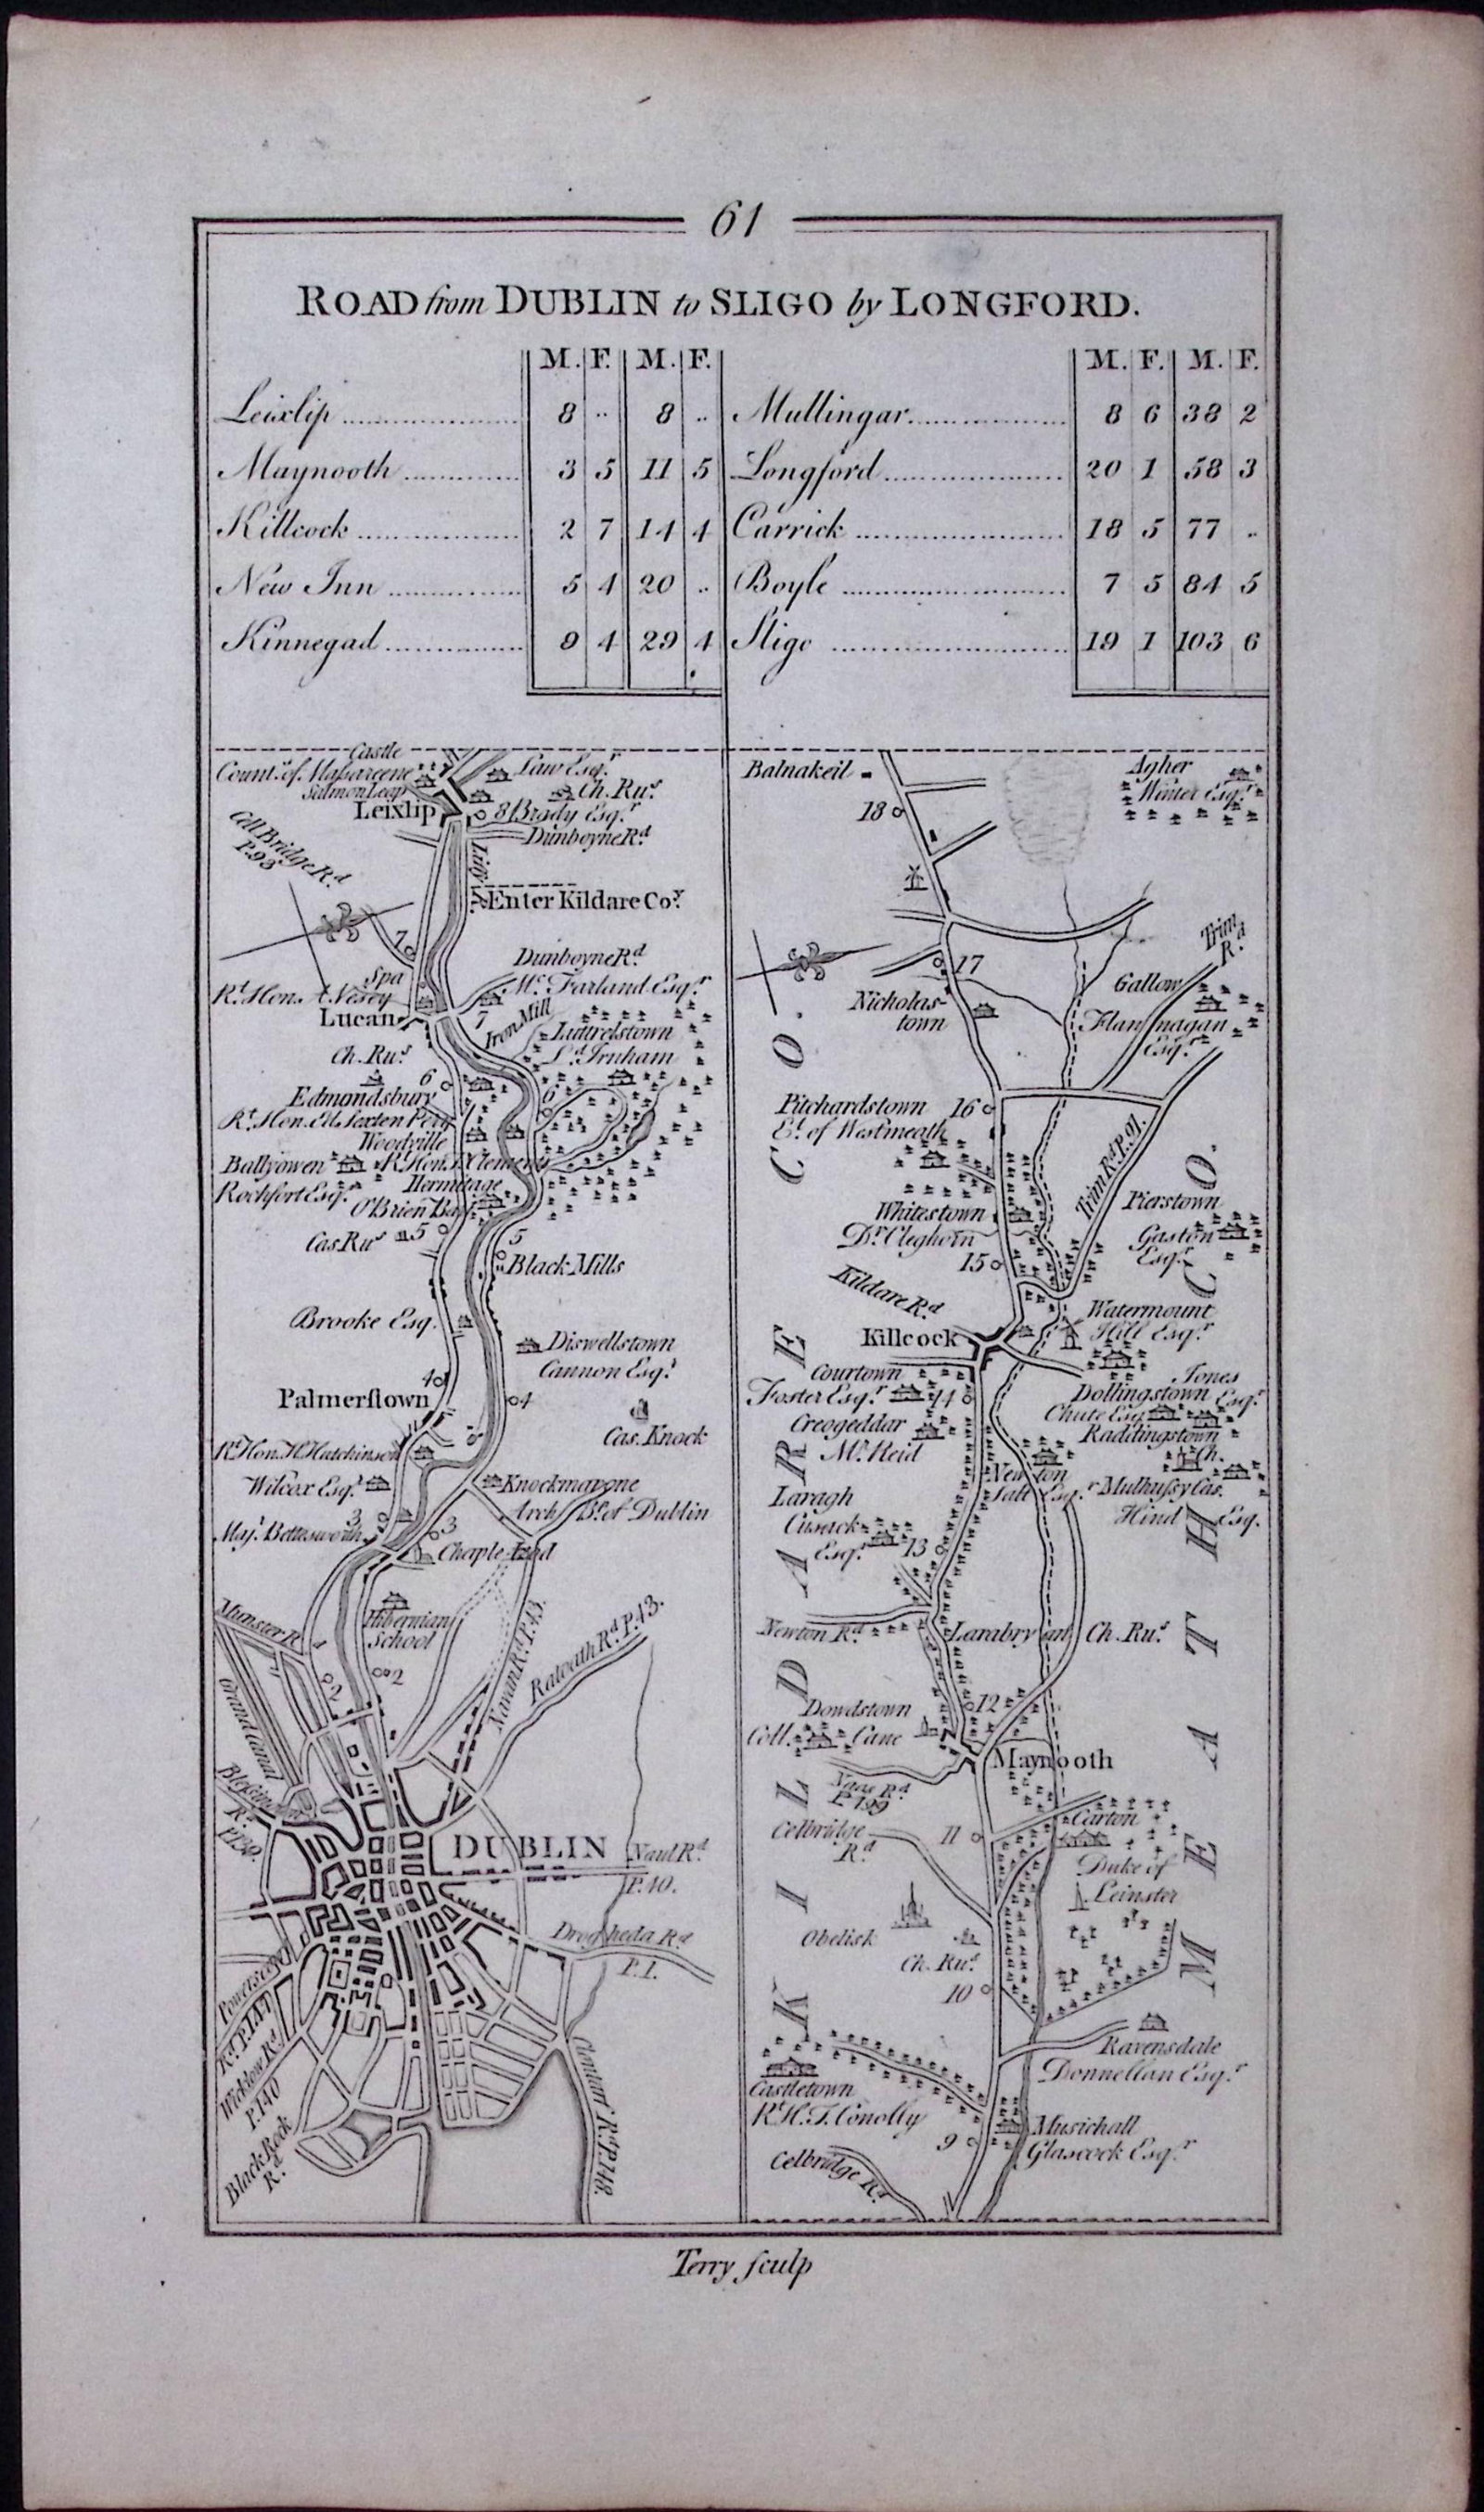 61
ROAD from DUBLIN to SLIGO by LONGFORD.
M. F. M. F.
Leixlip 8 .. 8 ..
Maynooth 3 5 11 5
Killcock 2 7 14 4
New Inn 5 4 20 ..
Kinnegad 9 4 29 4
M. F. M. F.
Mullingar 8 6 38 2
Longford 20 1 58 3
Carrick 18 5 77 ..
Boyle 7 5 84 5
Sligo 19 1 103 6
Castle
Count.s of Massareene
Salmon Leap
Leixlip
Law Esq.r
Ch. Ru.s
8 Brady Esq.r
Dunboyne R.d
Cell Bridge R.d
P.93
Liffy R.
Enter Kildare Co.y
7
Dunboyne R.d
Spa
R.t Hon. A. Vesey
Mc. Farland Esq.r
Lucan
7
Iron Mill
Luttrelstown
L.d Irnham
Ch. Ru.s
6
Edmondsbury
6
R.t Hon. Ed. Sexten Pery
Woodville
Ballyowen
R.t Hon. T. Clements
Rochfort Esq.r
Hermitage
O'Brien Bar.t
Cas. Ru.s
5
5
Black Mills
Brooke Esq.r
Diswellstown
Cannon Esq.r
4
Palmerstown
4
Cas. Knock
R.t Hon. H. Hutchinson
Wilcox Esq.r
Knockmarone
Arch B.p of Dublin
3
Maj.r Bettesworth
3
Chaple-Izod
Munster R.d
Hibernian
School
2
2
Navan R.d P.43.
Ratoath R.d P.43.
Grand Canal
Blessington
R.d
P.139.
DUBLIN
Naul R.d
P.40.
Drogheda R.d
P.1.
Powerscourt
R.d P.147
Wicklow R.d
P.140
Black Rock
R.d
Clontarf R.d P.148.
Balnakeil
18
Agher
Winter Esq.r
Trim
R.d
17
Nicholas-
town
Gallow
Flannagan
Esq.r
Pitchardstown
16
E.l of Westmeath
Trim R.d P.97.
Pierstown
Gaston
Esq.r
Whitestown
D.r Cleghorn
15
Kildare R.d
Killcock
Watermount
Hill Esq.r
Courtown
Foster Esq.r
14
Jones
Esq.r
Dollingstown
Chute Esq.
Creogeddar
Mr. Reid
Raddingstown
Ch.
Newton
Salt Esq.r
Mulhussy Cas.
Hind Esq.
Laragh
Cusack
Esq.r
13
Newton R.d
Larabryan Ch. Ru.s
Dowdstown
Coll. Cane
12
Maynooth
Naas R.d
P.199
Celbridge
R.d
11
Carton
Duke of
Leinster
Obelisk
Ch. Ru.s
10
Ravensdale
Donnellan Esq.r
Castletown
R.t H. T. Conolly
9
Musichall
Glascock Esq.r
Celbridge R.d
CO. KILDARE
CO. MEATH
Terry sculp